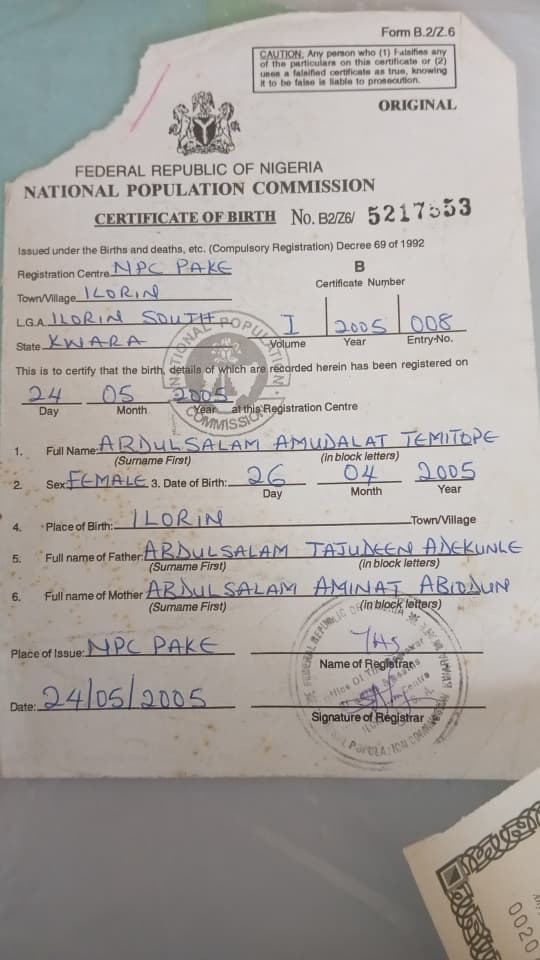 Form B.2/Z.6
CAUTION: Any person who (1) Falsifies any
of the particulars on this certificate or (2)
uses a falsified certificate as true, knowing
it to be false is liable to prosecution.
ORIGINAL
FEDERAL REPUBLIC OF NIGERIA
NATIONAL POPULATION COMMISSION
CERTIFICATE OF BIRTH No. B2/Z6/ 5217553
Issued under the Births and deaths, etc. (Compulsory Registration) Decree 69 of 1992
Registration Centre NPC PAKE
B
Certificate Number
Town/Village ILORIN
L.G.A. ILORIN SOUTH
I 2005 008
Volume Year Entry-No.
State KWARA
NATIONAL POPULATION COMMISSION
This is to certify that the birth, details of which are recorded herein has been registered on
24 05 2005
Day Month Year at this Registration Centre
1. Full Name: ABDULSALAM AMUDALAT TEMITOPE
(Surname First) (in block letters)
2. Sex FEMALE 3. Date of Birth: 26 04 2005
Day Month Year
4. Place of Birth: ILORIN Town/Village
5. Full name of Father ABDULSALAM TAJUDEEN ADEKUNLE
(Surname First) (in block letters)
6. Full name of Mother ABDULSALAM AMINAT ABIODUN
(Surname First) (in block letters)
Place of Issue: NPC PAKE
Name of Registrar
Date: 24/05/2005
Signature of Registrar
0020